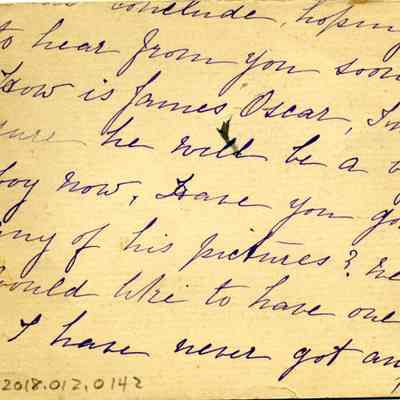 conclude, hoping
to hear from you soon
How is James Oscar, I'm
sure he will be a
boy now, Have you got
any of his pictures? we
would like to have one
I have never got an
2018.012.0142